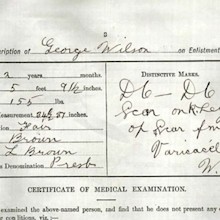 3
scription of George Wilson on Enlistment
2 years months.
5 feet 9½ inches.
155 lbs.
Measurement 34½ 37 inches.
xion Fair
Brown
L Brown
s Denomination Presb
DISTINCTIVE MARKS.
D6 – D6
Scar on
of Scar
W.
CERTIFICATE OF MEDICAL EXAMINATION.
examined the above-named person, and find that he does not present any
conditions, viz.:—